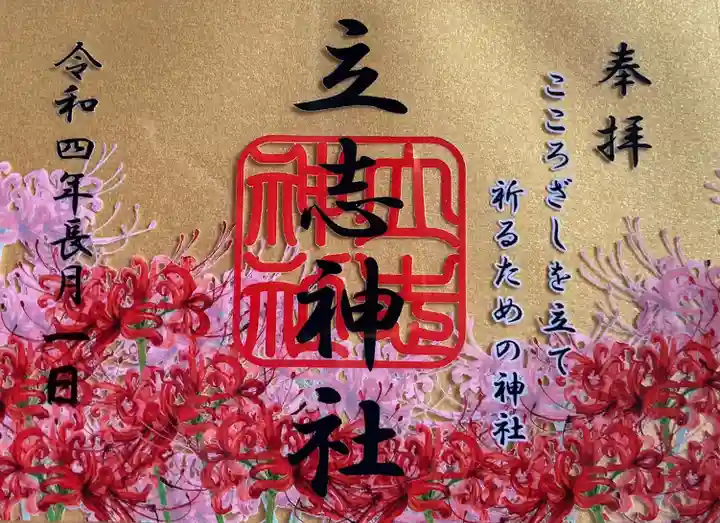 奉拝
こころざしを立て
祈るための神社
立志神社
立志神社
令和四年長月一日